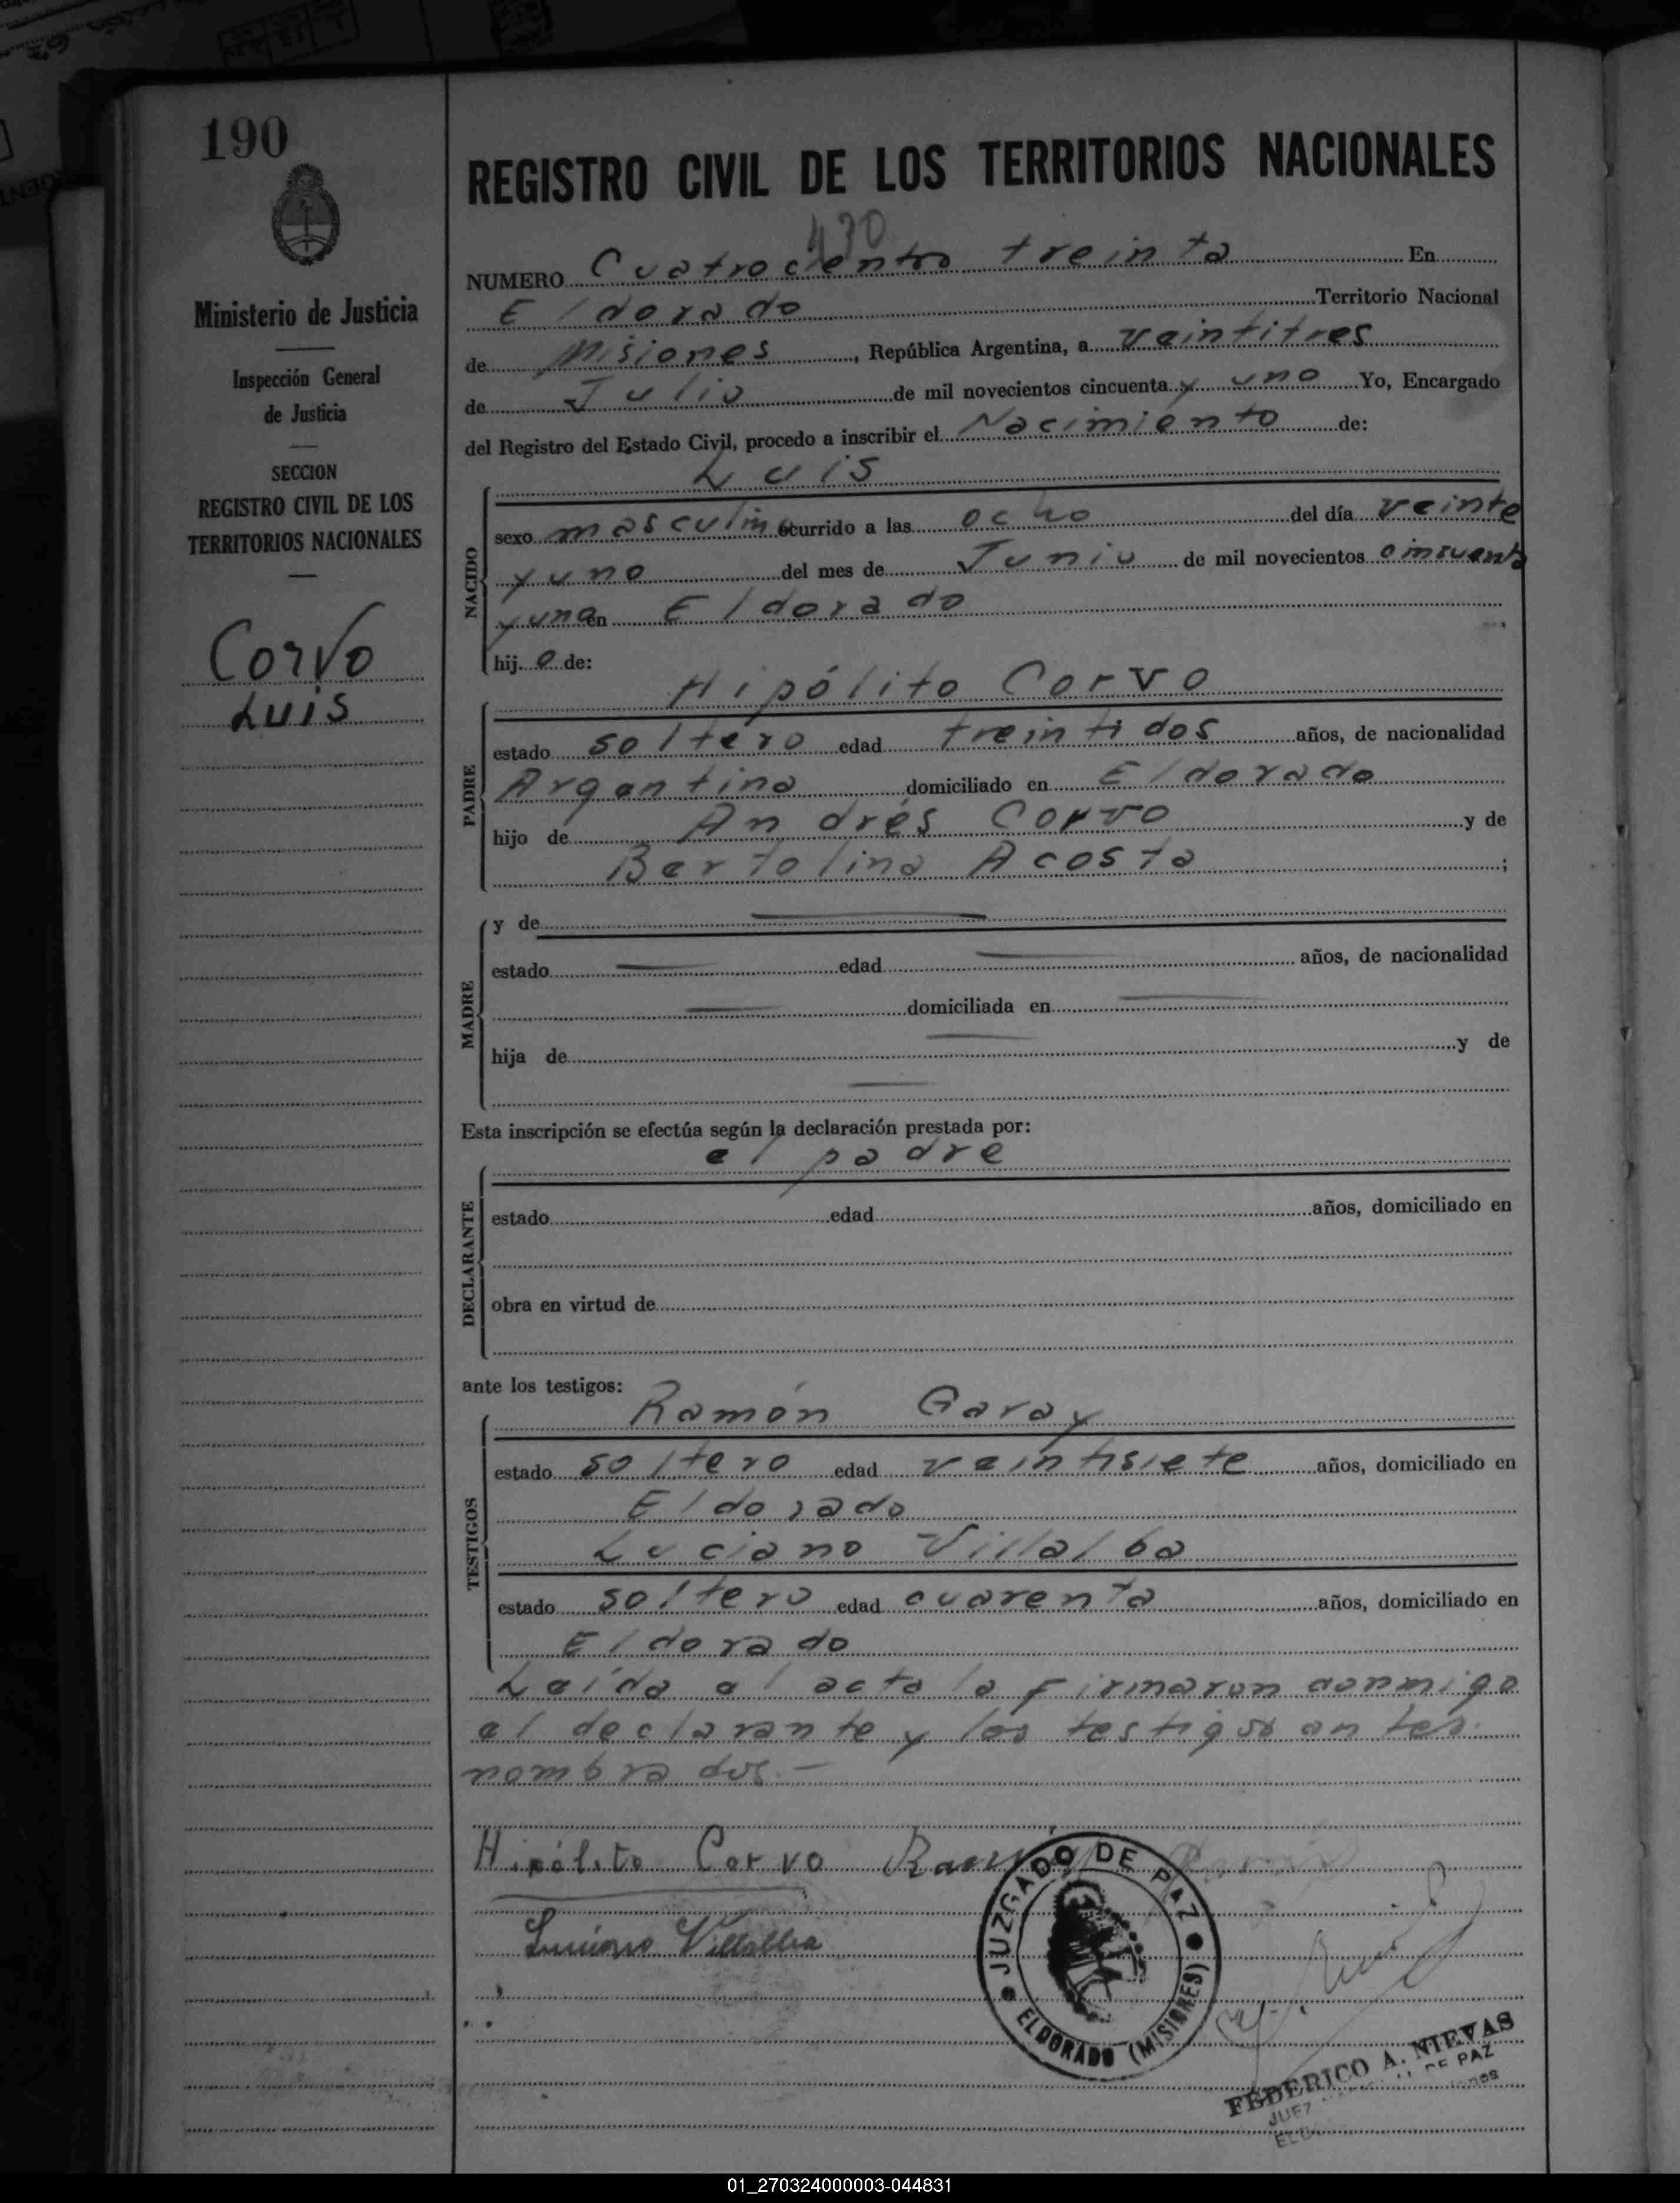 190
REGISTRO CIVIL DE LOS TERRITORIOS NACIONALES
430
NUMERO Cuatrocientro treinta En
Eldorado Territorio Nacional
de Misiones, República Argentina, a veintitres
de Julio de mil novecientos cincuenta y uno Yo, Encargado
del Registro del Estado Civil, procedo a inscribir el Nacimiento de:
Ministerio de Justicia
Inspección General
de Justicia
SECCION
REGISTRO CIVIL DE LOS
TERRITORIOS NACIONALES
Corvo
Luis
NACIDO
Luis
sexo masculino ocurrido a las ocho del día veinte
y uno del mes de Junio de mil novecientos cincuenta
y uno en Eldorado
hijo de:
PADRE
Hipólito Corvo
estado soltero edad treintidos años, de nacionalidad
Argentina domiciliado en Eldorado
hijo de Andrés Corvo y de
Bertolina Acosta;
MADRE
y de
estado edad años, de nacionalidad
domiciliada en
hija de y de
Esta inscripción se efectúa según la declaración prestada por:
DECLARANTE
el padre
estado edad años, domiciliado en
obra en virtud de
ante los testigos:
TESTIGOS
Ramón Garay
estado soltero edad veintisiete años, domiciliado en
Eldorado
Luciano Villalba
estado soltero edad cuarenta años, domiciliado en
Eldorado
Leída el acta la firmaron conmigo
el declarante y los testigos antes
nombrados.—
Hipólito Corvo Ramón
Luciano Villalba
JUZGADO DE PAZ
ELDORADO (MISIONES)
FEDERICO A. NIEVAS
JUEZ DE PAZ
01_270324000003-044831